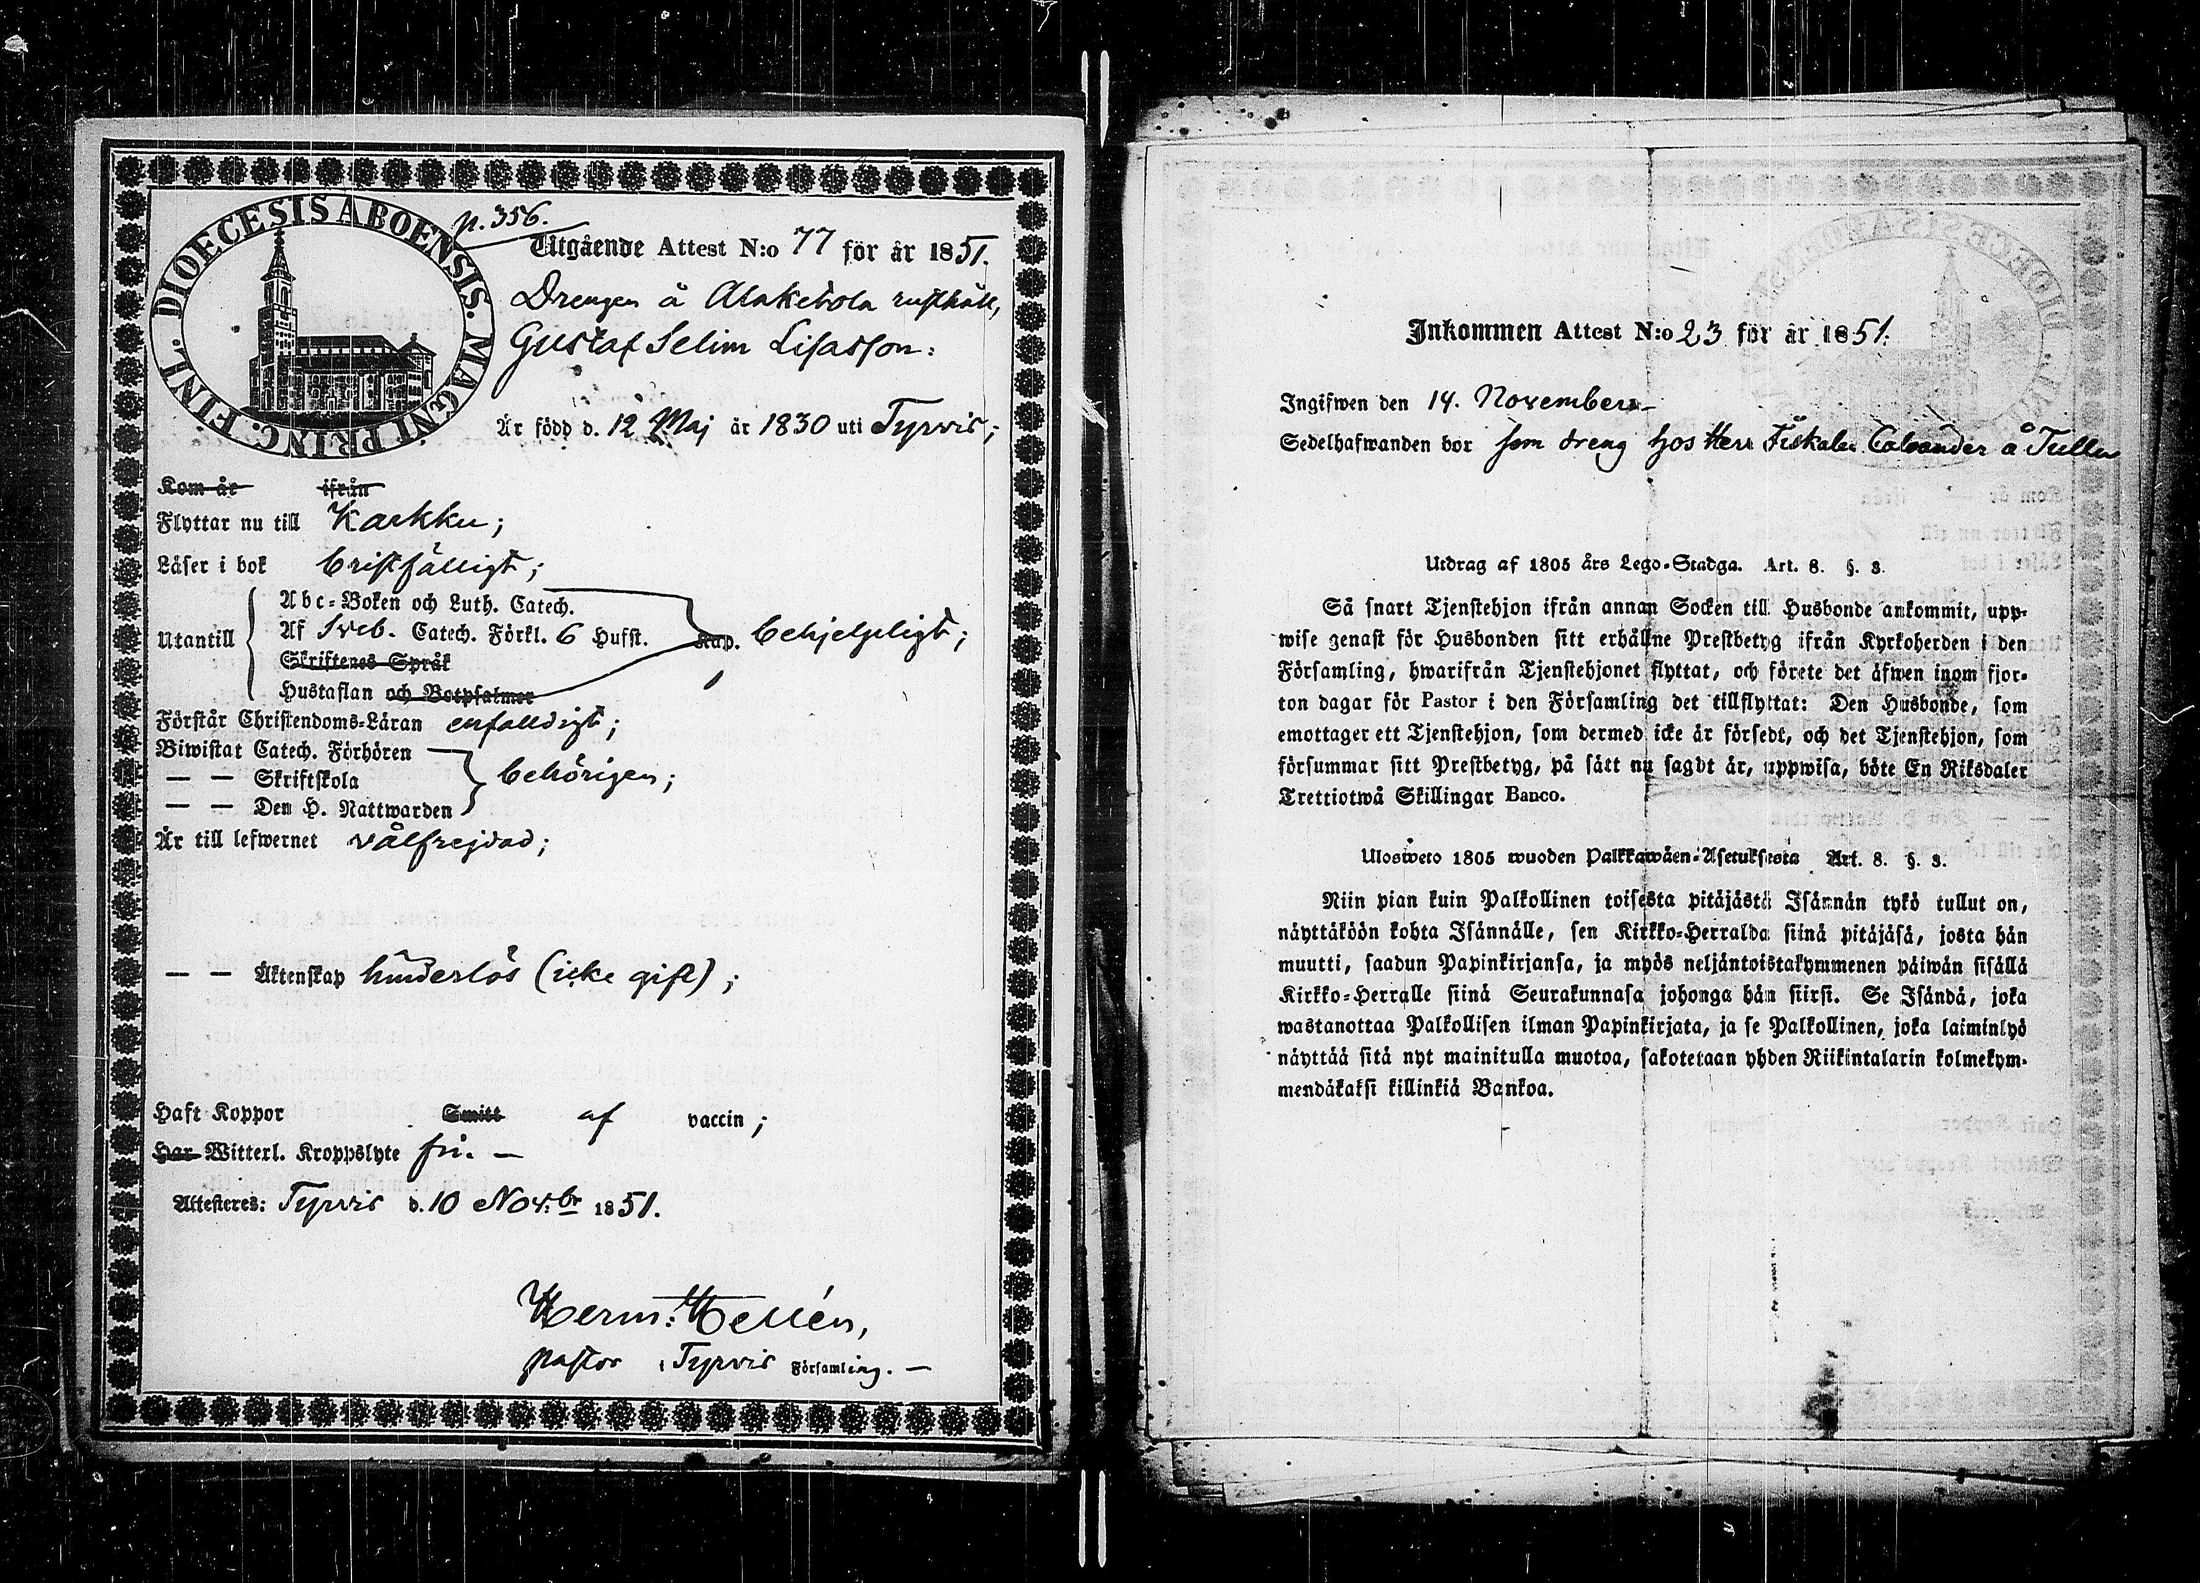 DIOECESIS ABOENSIS. MAGNI PRINC. FINL.
p. 356.
Utgående Attest N:o 77 för år 1851.
Drengen å Alaketola rusthåll,
Gustaf Selim Lisasson:
Är född d. 12 Maj år 1830 uti Tyrvis;
Kom år ifrån
Flyttar nu till Karkku;
Läser i bok bristfälligt;
Utantill
Abc-Boken och Luth. Catech.
Af Sveb. Catech. Förkl. 6 Hufst. Kap. behjelpligt;
Skriftenes Språk
Hustaflan och Botpsalmer
Förstår Christendoms-Läran enfaldigt;
Biwistat Catech. Förhören
— — Skriftskola behörigen;
— — Den H. Nattwarden
Är till lefwernet välfrejdad;
— — Äktenskap hinderlös (icke gift);
Haft Koppor Smitt af vaccin;
Har Witterl. Kroppslyte fri. —
Attesteres: Tyrvis d. 10 Nov:br 1851.
Herm: Hellén,
pastor i Tyrvis Församling. —
Inkommen Attest N:o 23 för år 1851.
Ingifwen den 14. November
Sedelhafwanden bor som dreng hos Herr Fiskalen å
Utdrag af 1805 års Lego-Stadga. Art. 8. §. 3.
Så snart Tjenstehjon ifrån annan Socken till Husbonde ankommit, upp-
wise genast för Husbonden sitt erhållne Prestbetyg ifrån Kyrkoherden i den
Församling, hwarifrån Tjenstehjonet flyttat, och förete det äfwen inom fjor-
ton dagar för Pastor i den Församling det tillflyttat: Den Husbonde, som
emottager ett Tjenstehjon, som dermed icke är försedt, och det Tjenstehjon, som
försummar sitt Prestbetyg, på sätt nu sagdt är, uppwisa, böte En Riksdaler
Trettiotwå Skillingar Banco.
Ulosweto 1805 wuoden Palkkawäen-Asetuksesta Art. 8. §. 3.
Niin pian kuin Palkollinen toisesta pitäjästä Isännän tykö tullut on,
näyttäköön kohta Isännälle, sen Kirkko-Herralda siinä pitäjäsä, josta hän
muutti, saadun Papinkirjansa, ja myös neljäntoistakymmenen päiwän sisällä
Kirkko-Herralle siinä Seurakunnasa johonga hän siirsi. Se Isändä, joka
wastanottaa Palkollisen ilman Papinkirjata, ja se Palkollinen, joka laiminlyö
näyttää sitä nyt mainitulla muotoa, sakotetaan yhden Riikintalarin kolmekym-
mendäkaksi killinkiä Bankoa.